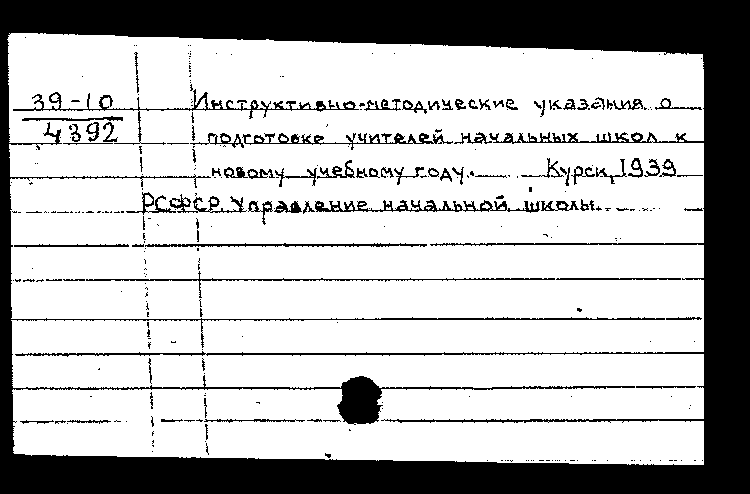 39-10
4392
Инструктивно-методические указания о
подготовке учителей начальных школ к
новому учебному году. Курск, 1939
РСФСР. Управление начальной школы.